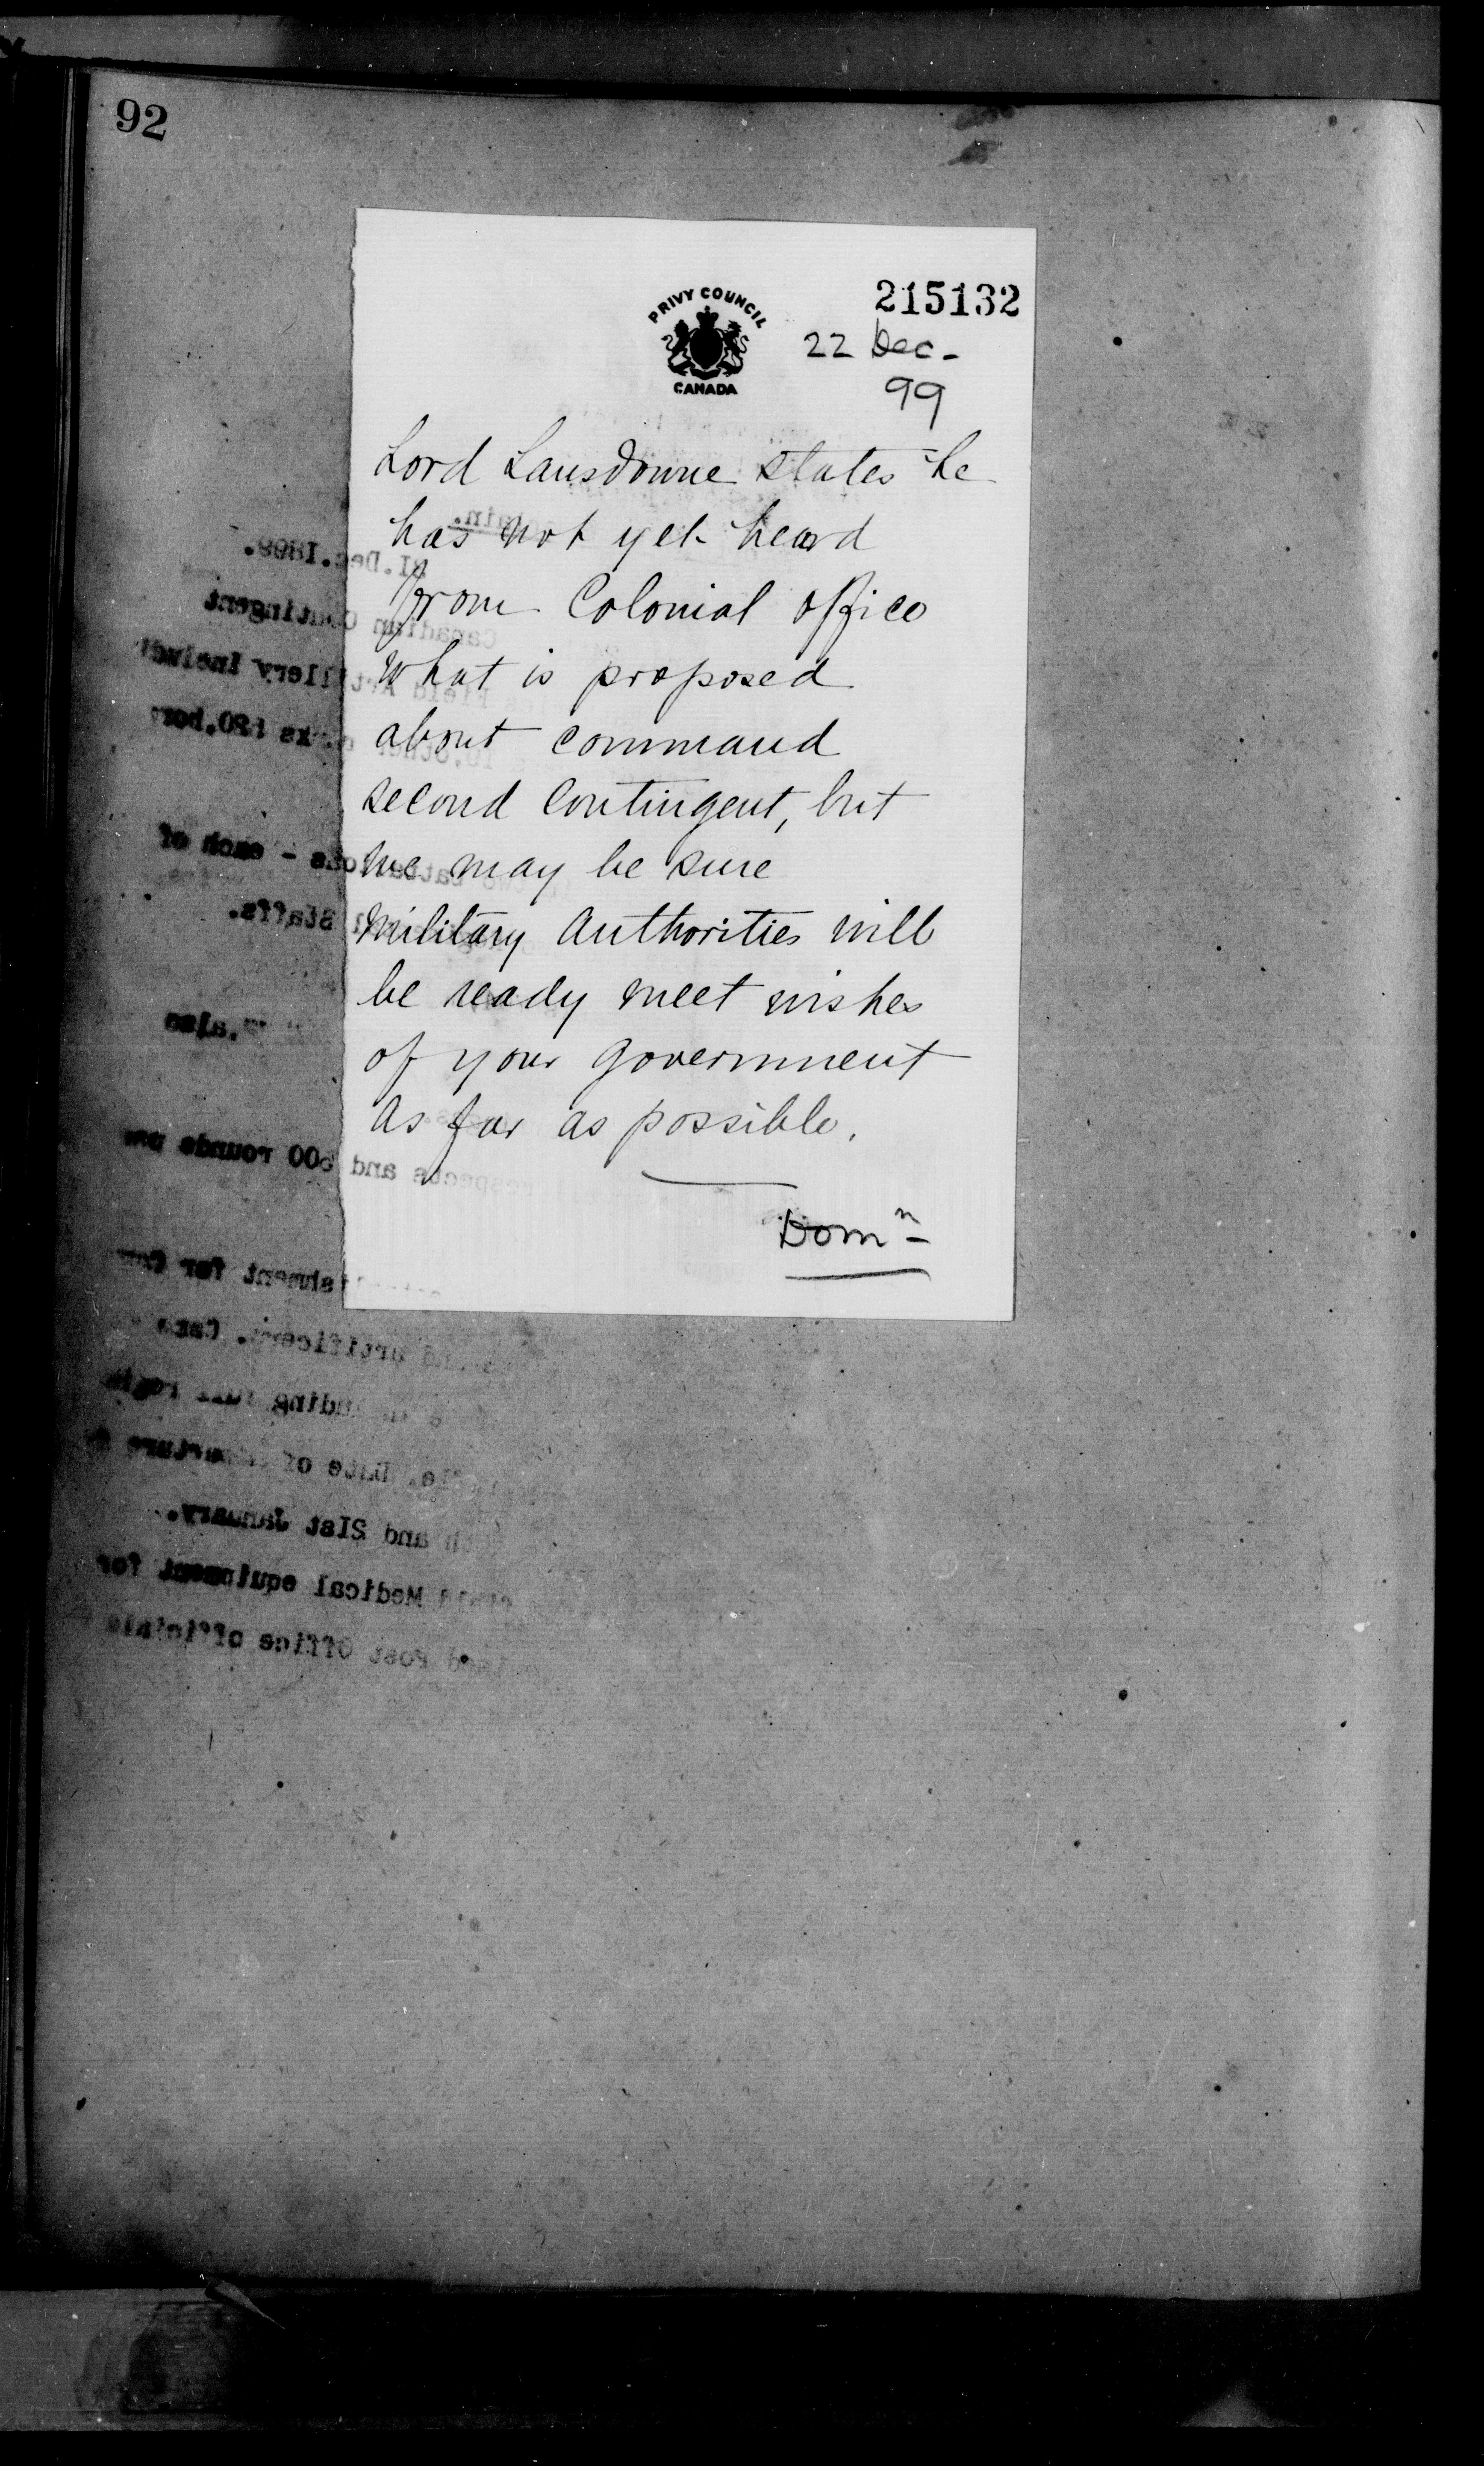 92
PRIVY COUNCIL
CANADA
215132
22 Dec -
99
Lord Lansdowne states he
has not yet heard
from Colonial Office
what is proposed
about command
second Contingent, but
we may be sure
Military Authorities will
be ready meet wishes
of your Government
as far as possible.
Domn